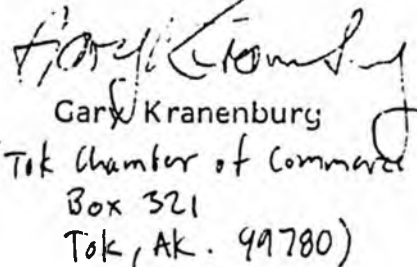 Gary Kranenburg
Gary Kranenburg
Tok Chamber of Commerce
Box 321
Tok, AK. 99780)